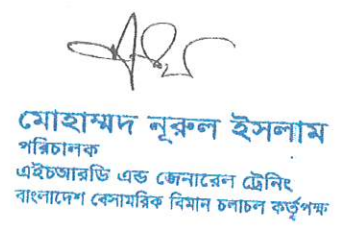 মোহাম্মদ নূরুল ইসলাম
পরিচালক
এইচআরডি এন্ড জেনারেল ট্রেনিং
বাংলাদেশ বেসামরিক বিমান চলাচল কর্তৃপক্ষ